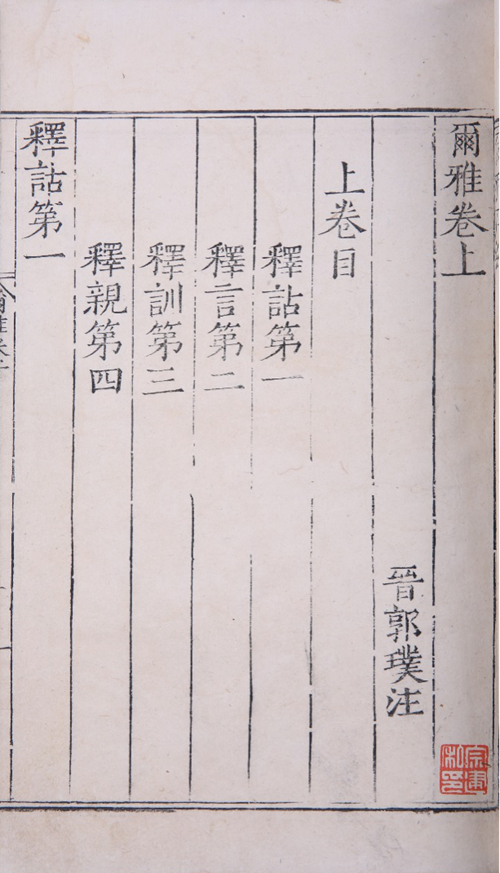 爾雅卷上
晉郭璞注
上卷目
釋詁第一
釋言第二
釋訓第三
釋親第四
釋詁第一